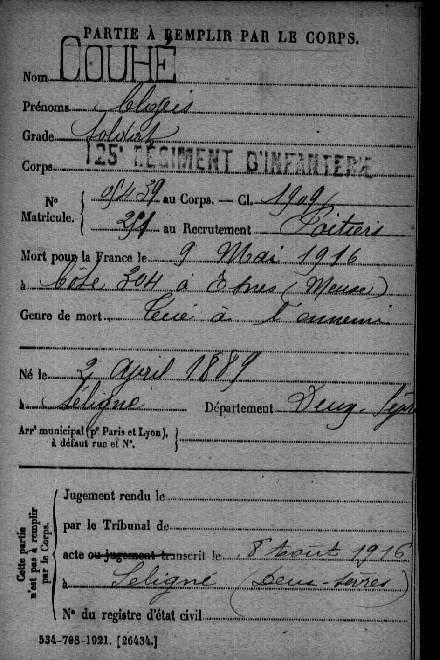 PARTIE À REMPLIR PAR LE CORPS.
Nom COUHÉ
Prénoms Clovis
Grade Soldat
Corps 125e RÉGIMENT D'INFANTERIE
N° Matricule. { 05439 au Corps. — Cl. 1909
251 au Recrutement Poitiers
Mort pour la France le 9 Mai 1916
à Côte 304 à Esnes (Meuse)
Genre de mort Tué à l'ennemi
Né le 2 April 1889
à Séligné Département Deux-Sèvres
Arrt municipal (pr Paris et Lyon), à défaut rue et N°. }
Cette partie n'est pas à remplir par le Corps.
Jugement rendu le
par le Tribunal de
acte ou jugement transcrit le 8 Août 1916
à Séligné (Deux-Sèvres)
N° du registre d'état civil
534-708-1921. [26434.]